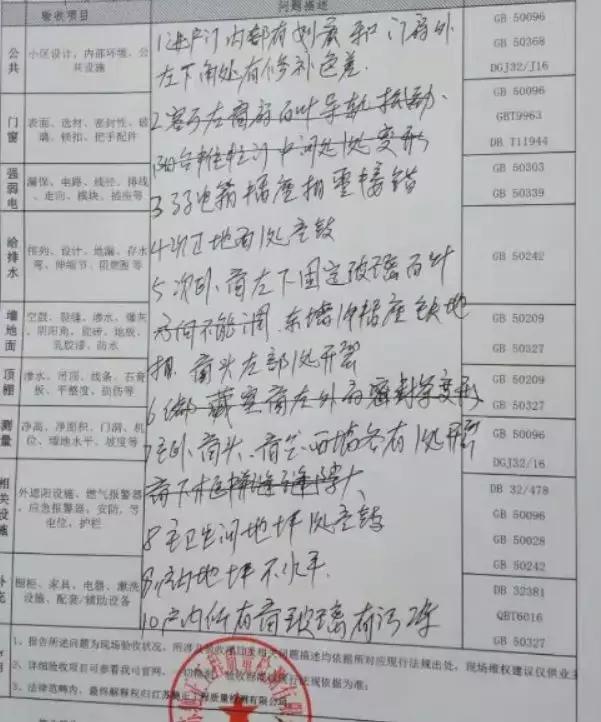 验收项目
问题描述
公共
小区设计、内部环境、公共设施
GB 50096
GB 50368
DGJ32/J16
1进户门内部有划痕和门扇外
左下角处有修补色差.
门窗
表面、选材、密封性、玻璃、锁扣、把手配件
GB 50096
GBT9963
DB T11944
2客厅左窗扇百叶导轨松动.
中间处1处变形
强弱电
漏保、电路、线径、排线、走向、模块、插座等
GB 50303
GB 50339
3弱电箱插座相零接错
给排水
排列、设计、地漏、存水弯、伸缩节、阻燃圈等
GB 50242
4次卫地面1处空鼓
5次卧、窗左下固定玻璃百叶
不能调.东墙 插座缺地
墙地面
空鼓、裂缝、渗水、爆灰、阴阳角、腻磅、地板、乳胶漆、防水
GB 50209
GB 50327
窗头左部1处开裂
顶棚
渗水、吊顶、线条、石膏板、平整度、损伤等
GB 50209
GB 50327
6 窗左外扇密封条变形
测量
净高、净面积、门洞、机位、墙地水平、坡度等
GB 50096
DGJ32/16
7主卧、窗头、西墙各有1处开裂
窗下
相关设施
外遮阳设施、燃气报警器、应急报警器、安防、等电位、护栏
DB 32/478
GB 50096
GB 50028
GB 50242
8主卫生间地坪1处空鼓
9户内地坪不水平.
补充
橱柜、家具、电器、漱洗设施、配套/辅助设备
DB 32381
QBT6016
GB 50327
10户内所有窗玻璃有污
1、报告所述问题为现场验收状况,所涉及验收项目及相关问题描述均依据所对应现行法规出处,现场维权建议仅供业主
2、详细验收项目可参看我司官网,
验收部 现行法规依据为准;
3、法律范畴内,最终解释权归江苏 工程质量检测有限公司